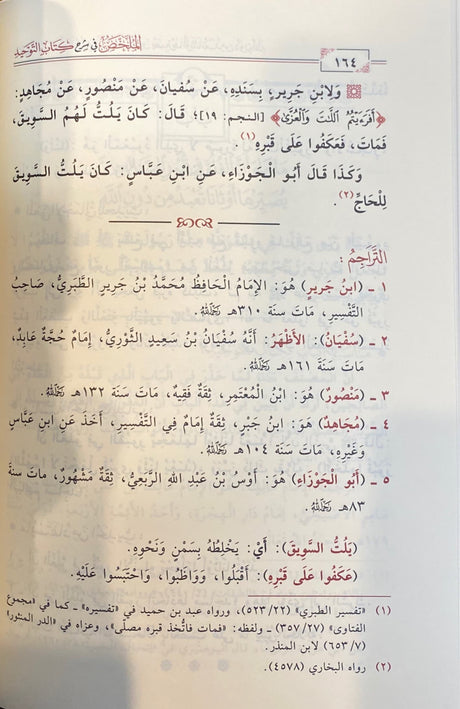 ١٦٤
الملخص في شرح كتاب التوحيد
وَلِابْنِ جَرِيرٍ، بِسَنَدِهِ، عَنْ سُفْيَانَ، عَنْ مَنْصُورٍ، عَنْ مُجَاهِدٍ:
﴿أَفَرَءَيْتُمُ ٱللَّـٰتَ وَٱلْعُزَّىٰ﴾ [النجم: ١٩]؛ قَالَ: كَانَ يَلُتُّ لَهُمُ السَّوِيقَ،
فَمَاتَ، فَعَكَفُوا عَلَى قَبْرِهِ(١).
وَكَذَا قَالَ أَبُو الْجَوْزَاءِ، عَنِ ابْنِ عَبَّاسٍ: كَانَ يَلُتُّ السَّوِيقَ
لِلْحَاجِّ(٢).
التَّرَاجِمُ:
١ ـ (ابنُ جَريرٍ) هُوَ: الإِمَامُ الْحَافِظُ مُحَمَّدُ بْنُ جَرِيرٍ الطَّبَرِيُّ، صَاحِبُ
التَّفْسِيرِ، مَاتَ سَنَةَ ٣١٠هـ رَحِمَهُ اللهُ.
٢ ـ (سُفْيَانُ): الأَظْهَرُ: أَنَّهُ سُفْيَانُ بْنُ سَعِيدٍ الثَّوْرِيُّ، إِمَامٌ حُجَّةٌ عَابِدٌ،
مَاتَ سَنَةَ ١٦١هـ رَحِمَهُ اللهُ.
٣ ـ (مَنْصُورٌ) هُوَ: ابْنُ الْمُعْتَمِرِ، ثِقَةٌ فَقِيهٌ، مَاتَ سَنَةَ ١٣٢هـ رَحِمَهُ اللهُ.
٤ ـ (مُجَاهِدٌ) هُوَ: ابنُ جَبْرٍ، ثِقَةٌ إِمَامٌ فِي التَّفْسِيرِ، أَخَذَ عَنِ ابنِ عَبَّاسٍ
وَغَيْرِهِ، مَاتَ سَنَةَ ١٠٤هـ رَحِمَهُ اللهُ.
٥ ـ (أَبُو الْجَوْزَاءِ) هُوَ: أَوْسُ بْنُ عَبْدِ اللهِ الرَّبَعِيُّ، ثِقَةٌ مَشْهُورٌ، ماتَ سنَةَ
٨٣هـ رَحِمَهُ اللهُ.
(يَلُتُّ السَّوِيقَ): أَيْ: يَخْلِطُهُ بِسَمْنٍ وَنَحْوِهِ.
(عَكَفُوا عَلَى قَبْرِهِ): أَقْبَلُوا، وَوَاظَبُوا، وَاحْتَبَسُوا عَلَيْهِ.
(١) «تفسير الطبري» (٥٢٣/٢٢)، ورواه عبد بن حميد في «تفسيره» ـ كما في «مجموع
الفتاوى» (٣٥٧/٢٧) ـ ولفظه: «فمات فاتُّخذ قبره مصلًّى»، وعزاه في «الدر المنثور»
(٦٥٣/٧) لابن المنذر.
(٢) رواه البخاري (٤٥٧٨).